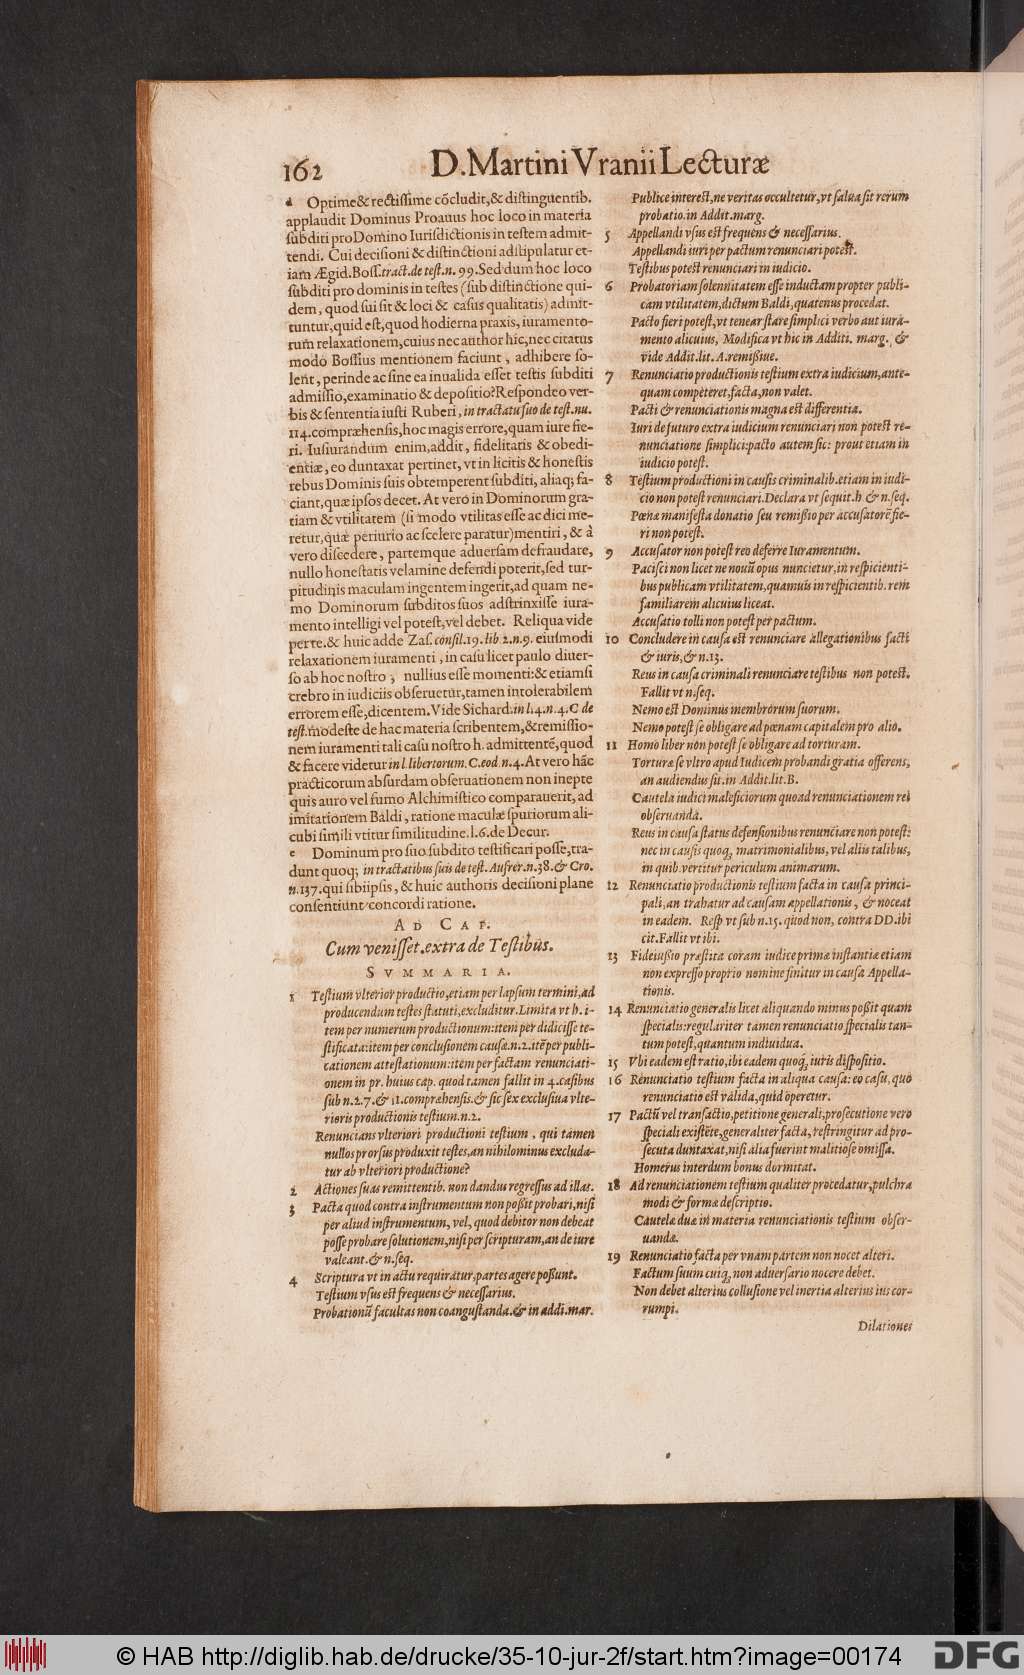 162
D. Martini Vranii Lecturæ
d Optime & rectissime cōcludit, & distinguentib.
applaudit Dominus Proauus hoc loco in materia
subditi pro Domino Iurisdictionis in testem admit-
tendi. Cui decisioni & distinctioni adstipulatur et-
iam Ægid. Boss. tract. de test. n. 99. Sed dum hoc loco
subditi pro dominis in testes (sub distinctione qui-
dem, quod sui sit & loci & casus qualitatis) admit-
tuntur, quid est, quod hodierna praxis, iuramento-
rum relaxationem, cuius nec author hic, nec citatus
modò Bossius mentionem faciunt, adhibere so-
lent, perinde ac sine ea inualida esset testis subditi
admissio, examinatio & depositio? Respondeo ver-
bis & sententia iusti Ruberi, in tractatu suo de test. nu.
114. compræhensis, hoc magis errore, quam iure fie-
ri. Iusiurandum enim, addit, fidelitatis & obedi-
entiæ, eo duntaxat pertinet, vt in licitis & honestis
rebus Dominis suis obtemperent subditi, aliaq; fa-
ciant, quæ ipsos decet. At verò in Dominorum gra-
tiam & vtilitatem (si modo vtilitas esse ac dici me-
retur, quæ periurio ac scelere paratur) mentiri, & à
vero discedere, partemque aduersam defraudare,
nullo honestatis velamine defendi poterit, sed tur-
pitudinis maculam ingentem ingerit, ad quam ne-
mo Dominorum subditos suos adstrinxisse iura-
mento intelligi vel potest, vel debet. Reliqua vide
per te. & huic adde Zas. consil. 19. lib 2. n. 9. eiusmodi
relaxationem iuramenti, in casu licet paulo diuer-
so ab hoc nostro, nullius esse momenti: & etiamsi
crebro in iudiciis obseruetur, tamen intolerabilem
errorem esse, dicentem. Vide Sichard. in l. 4. n. 4. C de
test. modeste de hac materia scribentem, & remissio-
nem iuramenti tali casu nostro h. admittentē, quod
& facere videtur in l. libertorum. C. eod. n. 4. At vero hāc
practicorum absurdam obseruationem non inepte
quis auro vel fumo Alchimistico comparauerit, ad
imitationem Baldi, ratione maculæ spuriorum ali-
cubi simili vtitur similitudine. l. 6. de Decur.
e Dominum pro suo subdito testificari posse, tra-
dunt quoq; in tractatibus suis de test. Aufrer. n. 38. & Cro.
n. 137. qui sibiipsis, & huic authoris decisioni plane
consentiunt concordi ratione.
AD CAP.
Cum venisset. extra de Testibus.
SVMMARIA.
1 Testium vlterior productio, etiam per lapsum termini, ad
producendum testes statuti, excluditur. Limita vt h. i-
tem per numerum productionum: item per didicisse te-
stificata: item per conclusionem causæ. n. 2. itē per publi-
cationem attestationum: item per factam renunciati-
onem in pr. huius cap. quod tamen fallit in 4. casibus
sub n. 2. 7. & 11. compræhensis. & sic sex exclusiua vlte-
rioris productionis testium. n. 2.
Renuncians vlteriori productioni testium, qui tamen
nullos prorsus produxit testes, an nihilominus excluda-
tur ab vlteriori productione?
2 Actiones suas remittentib. non dandus regressus ad illas.
3 Pacta quod contra instrumentum non poßit probari, nisi
per aliud instrumentum, vel, quod debitor non debeat
posse probare solutionem, nisi per scripturam, an de iure
valeant. & n. seq.
4 Scriptura vt in actu requiratur, partes agere poßunt.
Testium vsus est frequens & necessarius.
Probationū facultas non coangustanda. & in addi. mar.
Publice interest, ne veritas occultetur, vt salua sit rerum
probatio. in Addit. marg.
5 Appellandi vsus est frequens & necessarius.
Appellandi iuri per pactum renunciari potest.
Testibus potest renunciari in iudicio.
6 Probatoriam solennitatem esse inductam propter publi-
cam vtilitatem, dictum Baldi, quatenus procedat.
Pacto fieri potest, vt tenear stare simplici verbo aut iura-
mento alicuius, Modifica vt hic in Additi. marg. &
vide Addit. lit. A. remißiue.
7 Renunciatio productionis testium extra iudicium, ante-
quam competeret, facta, non valet.
Pacti & renunciationis magna est differentia.
Iuri de futuro extra iudicium renunciari non potest re-
nunciatione simplici: pacto autem sic: prout etiam in
iudicio potest.
8 Testium productioni in causis criminalib. etiam in iudi-
cio non potest renunciari. Declara vt sequit. h & n. seq.
Pœnæ manifesta donatio seu remißio per accusatorē fie-
ri non potest.
9 Accusator non potest reo deferre Iuramentum.
Pacisci non licet ne nouū opus nuncietur, in respicienti-
bus publicam vtilitatem, quamuis in respicientib. rem
familiarem alicuius liceat.
Accusatio tolli non potest per pactum.
10 Concludere in causa est renunciare allegationibus facti
& iuris, & n. 13.
Reus in causa criminali renunciare testibus non potest.
Fallit vt n. seq.
Nemo est Dominus membrorum suorum.
Nemo potest se obligare ad pœnam capitalem pro alio.
11 Homo liber non potest se obligare ad torturam.
Torturæ se vltro apud Iudicem probandi gratia offerens,
an audiendus sit. in Addit. lit. B.
Cautela iudici maleficiorum quoad renunciationem rei
obseruanda.
Reus in causa status defensionibus renunciare non potest:
nec in causis quoq; matrimonialibus, vel aliis talibus,
in quib. vertitur periculum animarum.
12 Renunciatio productionis testium facta in causa princi-
pali, an trahatur ad causam appellationis, & noceat
in eadem. Resp vt sub n. 15. quod non, contra DD. ibi
cit. Fallit vt ibi.
13 Fideiußio præstita coram iudice primæ instantiæ etiam
non expresso proprio nomine finitur in causa Appella-
tionis.
14 Renunciatio generalis licet aliquando minus poßit quam
specialis: regulariter tamen renunciatio specialis tan-
tum potest, quantum indiuidua.
15 Vbi eadem est ratio, ibi eadem quoq; iuris dispositio.
16 Renunciatio testium facta in aliqua causa: eo casu, quo
renunciatio est valida, quid operetur.
17 Pactū vel transactio, petitione generali, prosecutione vero
speciali existēte, generaliter facta, restringitur ad pro-
secuta duntaxat, nisi alia fuerint malitiose omissa.
Homerus interdum bonus dormitat.
18 Ad renunciationem testium qualiter procedatur, pulchra
modi & formæ descriptio.
Cautelæ duæ in materia renunciationis testium obser-
uandæ.
19 Renunciatio facta per vnam partem non nocet alteri.
Factum suum cuiq; non aduersario nocere debet.
Non debet alterius collusione vel inertia alterius ius cor-
rumpi.
Dilationes
© HAB http://diglib.hab.de/drucke/35-10-jur-2f/start.htm?image=00174
DFG